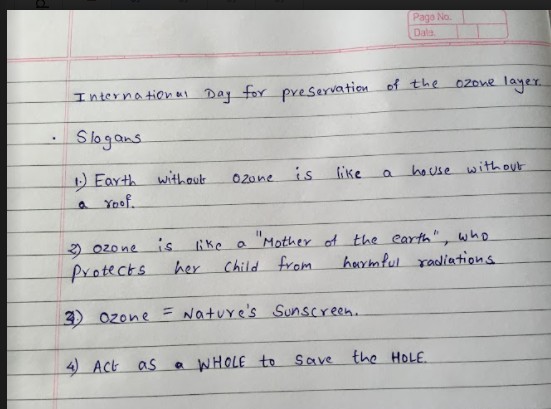 Page No.
Date
International Day for preservation of the ozone layer.
Slogans
1.) Earth without ozone is like a house without
a roof.
2) ozone is like a "Mother of the earth", who
Protects her child from harmful radiations
3.) Ozone = Nature's Sunscreen.
4) Act as a WHOLE to save the HOLE.